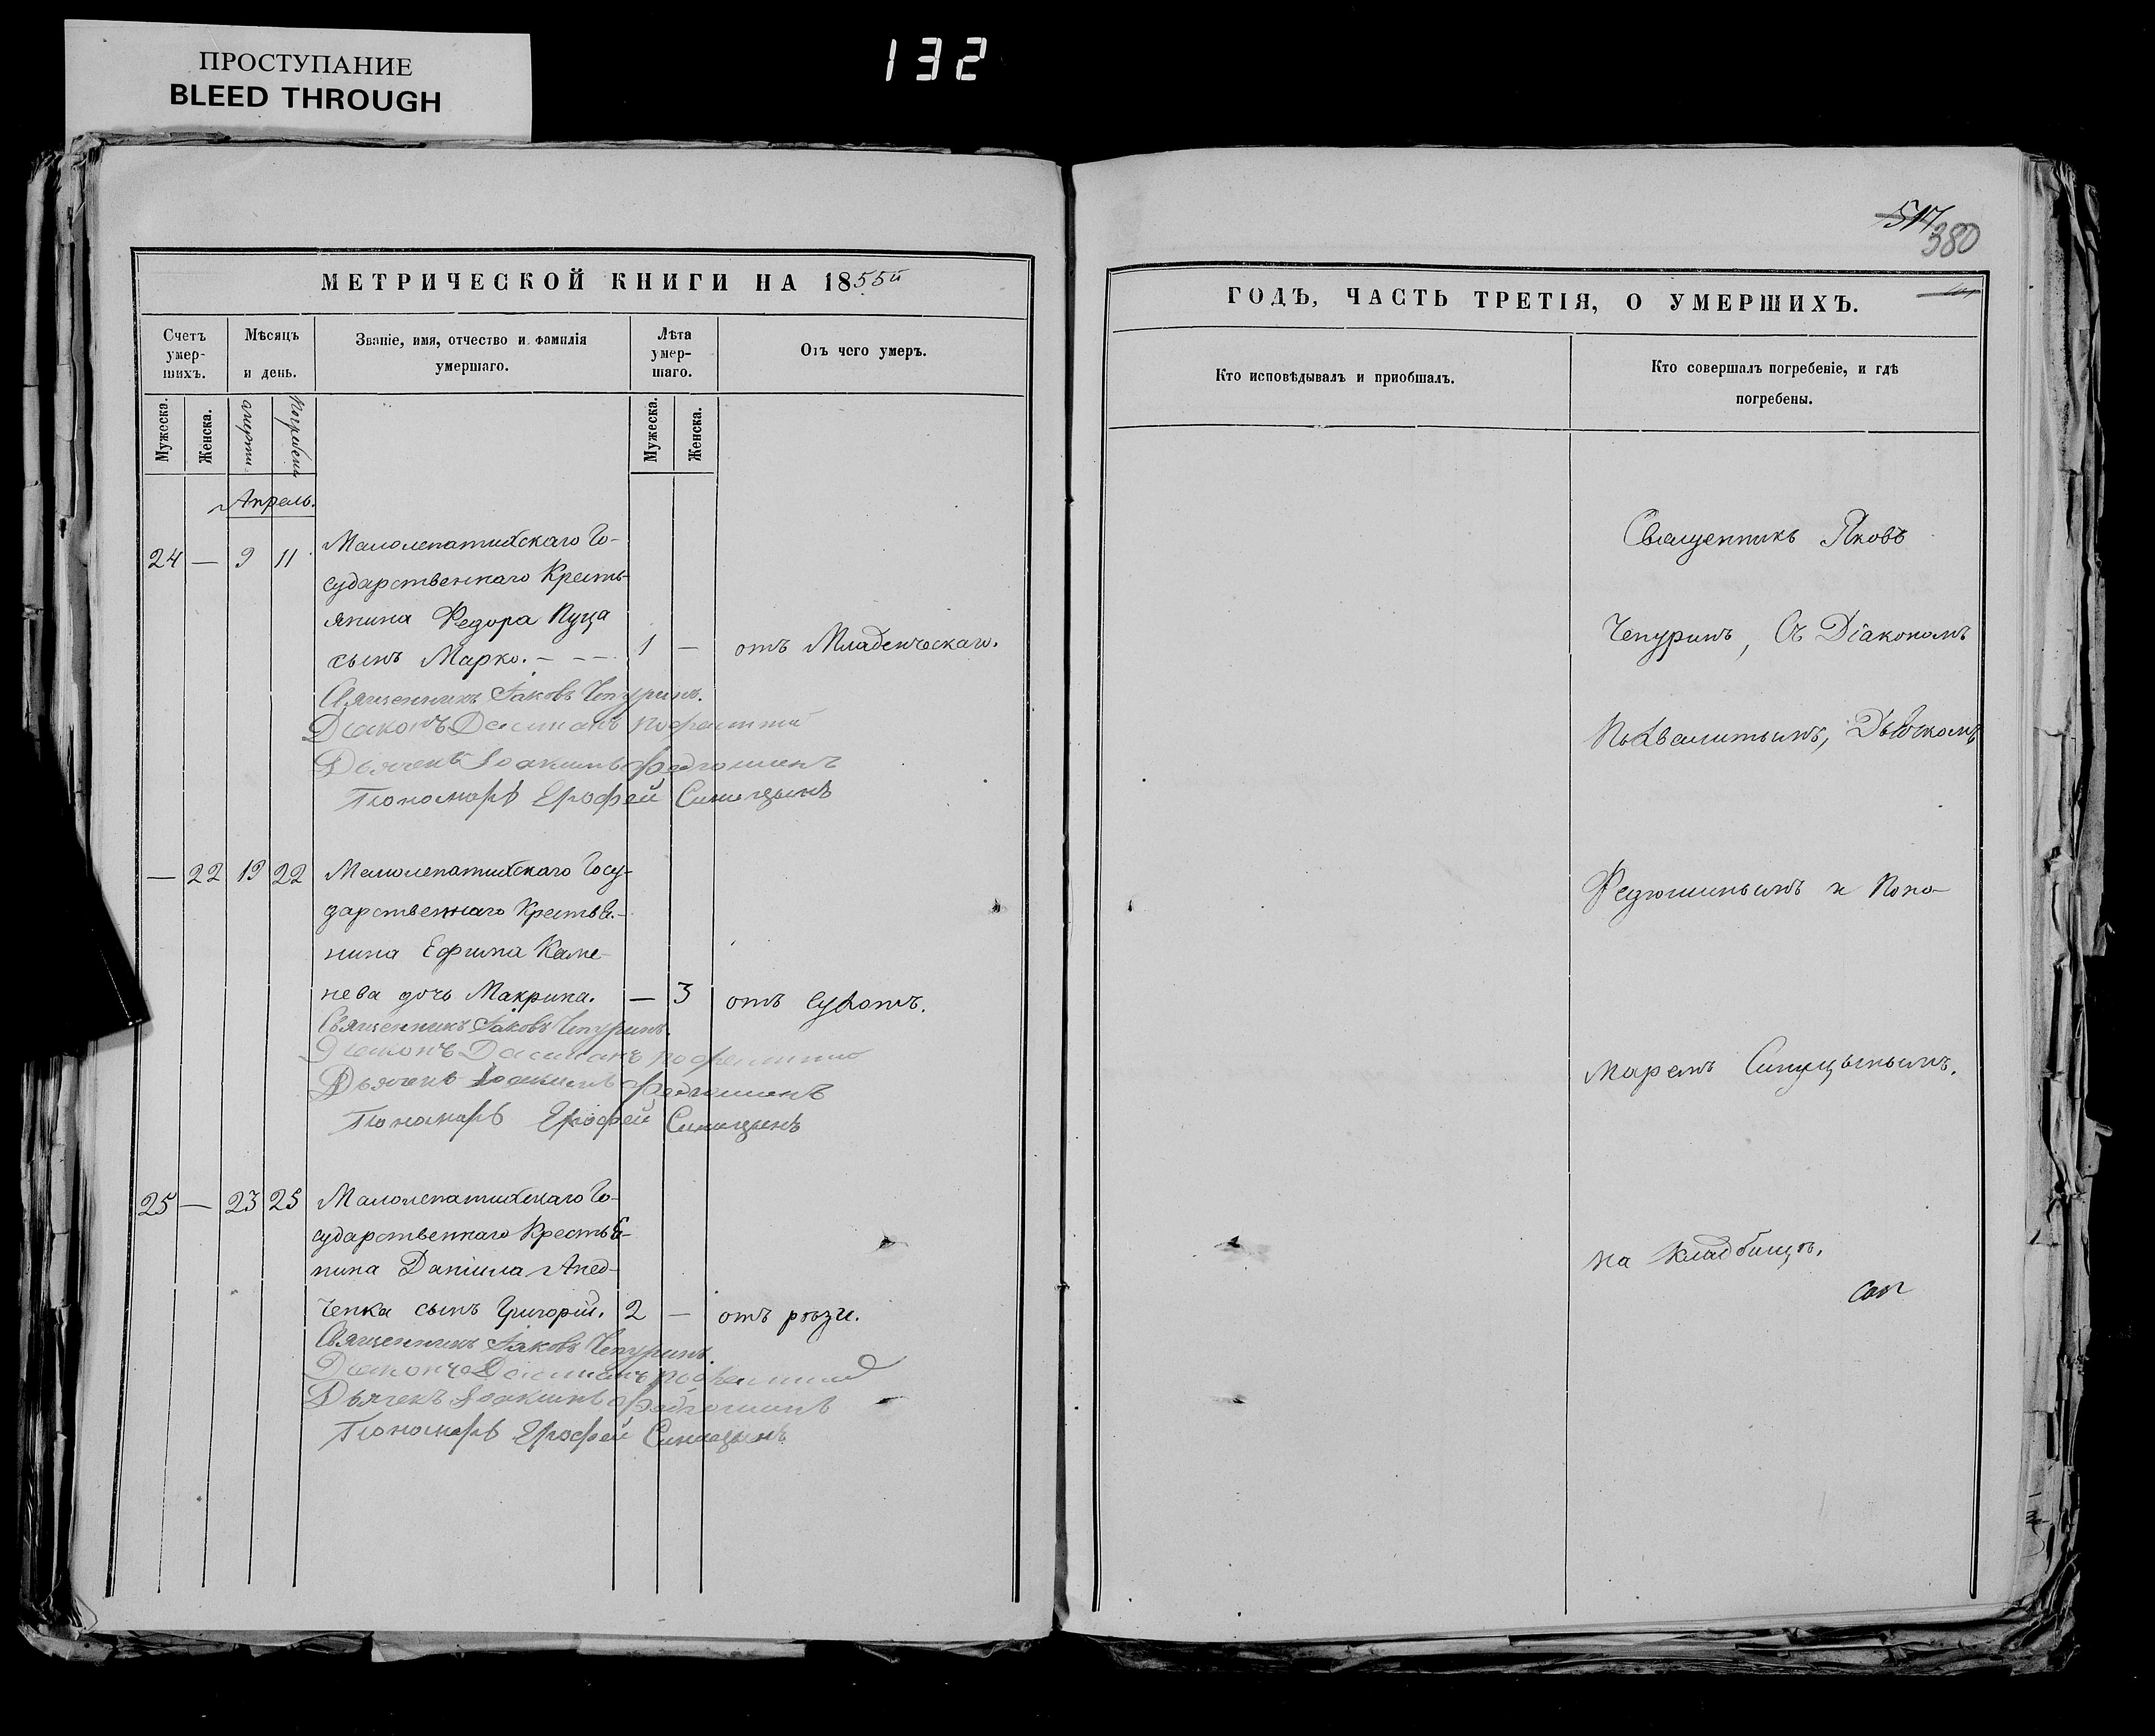 ПРОСТУПАНИЕ
BLEED THROUGH
132
517
380
МЕТРИЧЕСКОЙ КНИГИ НА 1855й
Счетъ умер- шихъ.
Мѣсяцъ и день.
Званіе, имя, отчество и фамилія
умершаго.
Лѣта умер- шаго.
Отъ чего умеръ.
Мужеска.
Женска.
Мужеска.
Женска.
Апрель.
24 — 9 11 Малолепатихскаго Го-
сударственнаго Кресть-
янина Федора Пуца
сынъ Марко. — — 1 — отъ Младенческаго.
Священникъ Іаковъ Чепуринъ.
Діаконъ
Дьячекъ Іоакимъ Федюшинъ
Пономарь Ерофей Синицынъ
— 22 19 22 Малолепатихскаго Госу-
дарственнаго Крестья-
нина Ефима Каме-
нева дочь Макрина. — 3 отъ сухотъ.
Священникъ Іаковъ Чепуринъ.
Діаконъ
Дьячекъ Іоакимъ Федюшинъ
Пономарь Ерофей Синицынъ
25 — 23 25 Малолепатихскаго Го-
сударственнаго Крестья-
нина Даніила
ченка сынъ Григорій. 2 — отъ рѣзи.
Священникъ Іаковъ Чепуринъ.
Діаконъ
Дьячекъ Іоакимъ Федюшинъ
Пономарь Ерофей Синицынъ
ГОДЪ, ЧАСТЬ ТРЕТІЯ, О УМЕРШИХЪ.
Кто исповѣдывалъ и приобшалъ.
Кто совершалъ погребеніе, и гдѣ
погребены.
Священникъ Яковъ
Чепуринъ, Съ Діакономъ
Дьячкомъ
Федюшинымъ и Поно-
маремъ Синицынымъ.
на кладбищѣ.